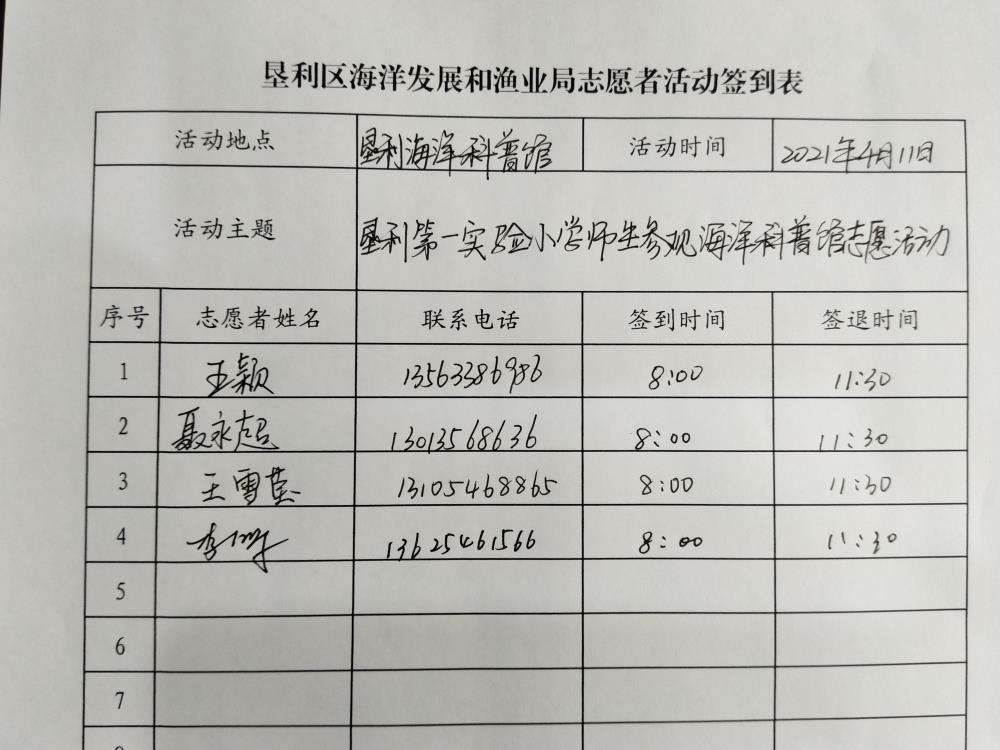 垦利区海洋发展和渔业局志愿者活动签到表
活动地点 垦利海洋科普馆 活动时间 2021年4月11日
活动主题 垦利第一实验小学师生参观海洋科普馆志愿活动
序号 志愿者姓名 联系电话 签到时间 签退时间
1 王颖 13563386986 8:00 11:30
2 聂永超 13013568636 8:00 11:30
3 王雪莹 13105468865 8:00 11:30
4 李 13625461566 8:00 11:30
5
6
7